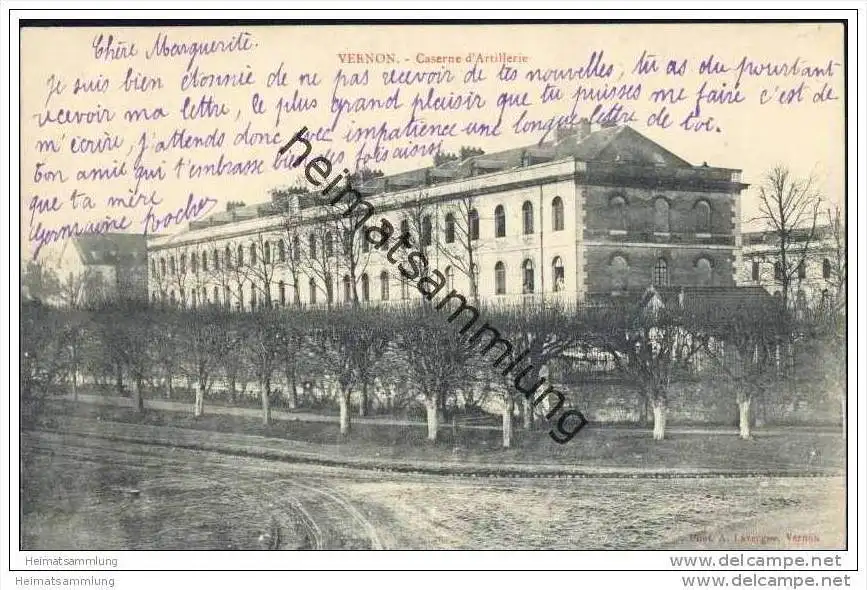 Chère Marguerite.
VERNON. - Caserne d'Artillerie
Je suis bien étonnée de ne pas recevoir de tes nouvelles, tu as du pourtant
recevoir ma lettre, le plus grand plaisir que tu puisses me faire c'est de
m'écrire, j'attends donc avec impatience une longue lettre de toi.
Ton amie qui t'embrasse bien
que ta mère
Germaine
heimatsammlung.de
Phot. A. Lavergne, Vernon
Heimatsammlung
www.delcampe.net
Heimatsammlung
www.delcampe.net